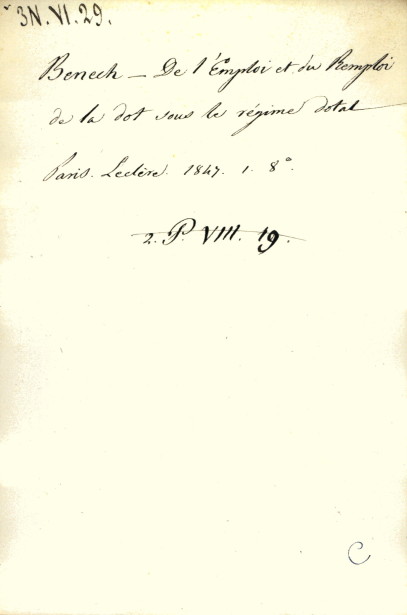 3N. VI. 29.
Benech — De l'Emploi et du Remploi
de la dot sous le régime dotal
Paris. Leclère. 1847. 1. 8°.
2. P. VIII. 19.
C